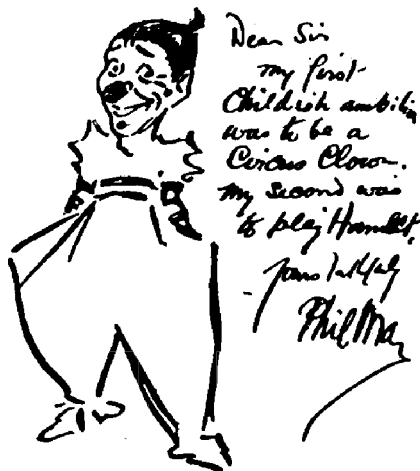 Dear Sir
my first
Childish ambition
was to be a
Circus Clown.
my second was
to play Hamlet.
yours faithfully
Phil May